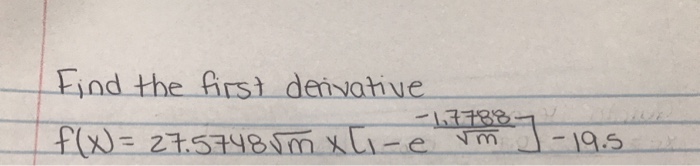 Find the first derivative
f(x) = 27.5748√m x [1-e^(-1.7788/√m)] - 19.5